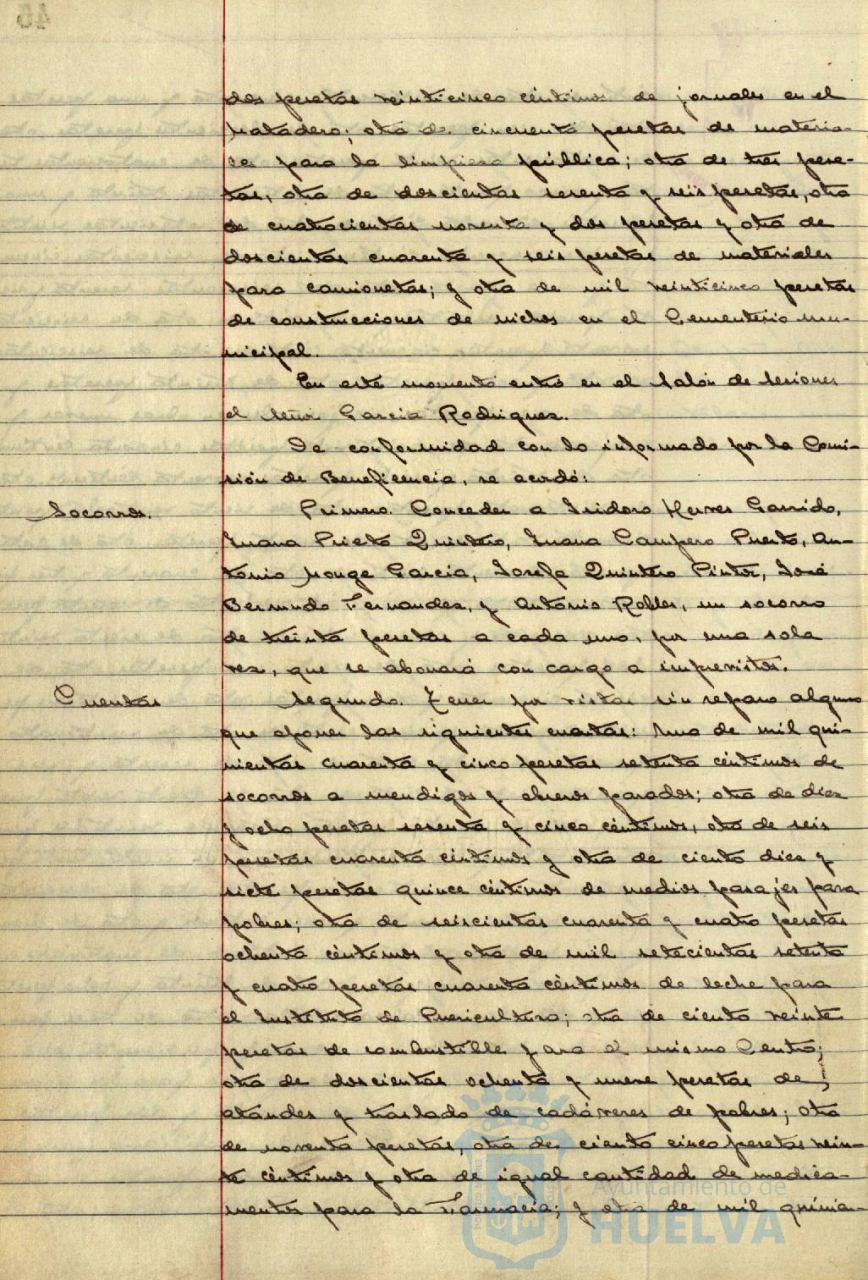 dos pesetas veinticinco céntimos de jornales en el
matadero; otra de cincuenta pesetas de materia-
les para la limpieza pública; otra de tres pese-
tas, otra de doscientas sesenta y seis pesetas, otra
de cuatrocientas noventa y dos pesetas y otra de
doscientas cuarenta y seis pesetas de materiales
para camionetas; y otra de mil veinticinco pesetas
de construcciones de nichos en el Cementerio mu-
nicipal.
En este momento entró en el Salón de Sesiones
el señor García Rodriguez.
De conformidad con lo informado por la Comi-
sión de Beneficencia, se acordó:
Socorros.
Primero. Conceder a Isidoro Garrido,
Juana Prieto Quintero, Juana Campero Puerto, An-
tonio Monge García, Josefa Quintero Pintor, José
Bermudo Fernandez, y Antonio Robles, un socorro
de treinta pesetas a cada uno, por una sola
vez, que se abonará con cargo a imprevistos.
Cuentas
Segundo. Tener por vistas sin reparo alguno
que oponer las siguientes cuentas: Una de mil qui-
nientas cuarenta y cinco pesetas setenta céntimos de
socorros a mendigos y obreros parados; otra de diez
y ocho pesetas sesenta y cinco céntimos, otra de seis
pesetas cuarenta céntimos y otra de ciento diez y
siete pesetas quince céntimos de medios pasajes para
pobres; otra de seiscientas cuarenta y cuatro pesetas
ochenta céntimos y otra de mil setecientas setenta
y cuatro pesetas cuarenta céntimos de leche para
el Instituto de Puericultura; otra de ciento veinte
pesetas de combustible para el mismo Centro;
otra de doscientas ochenta y nueve pesetas de
ataudes y traslado de cadáveres de pobres; otra
de noventa pesetas, otra de ciento cinco pesetas vein-
te céntimos y otra de igual cantidad de medica-
mentos para la Farmacia; y otra de mil quinien-
Ayuntamiento de
HUELVA